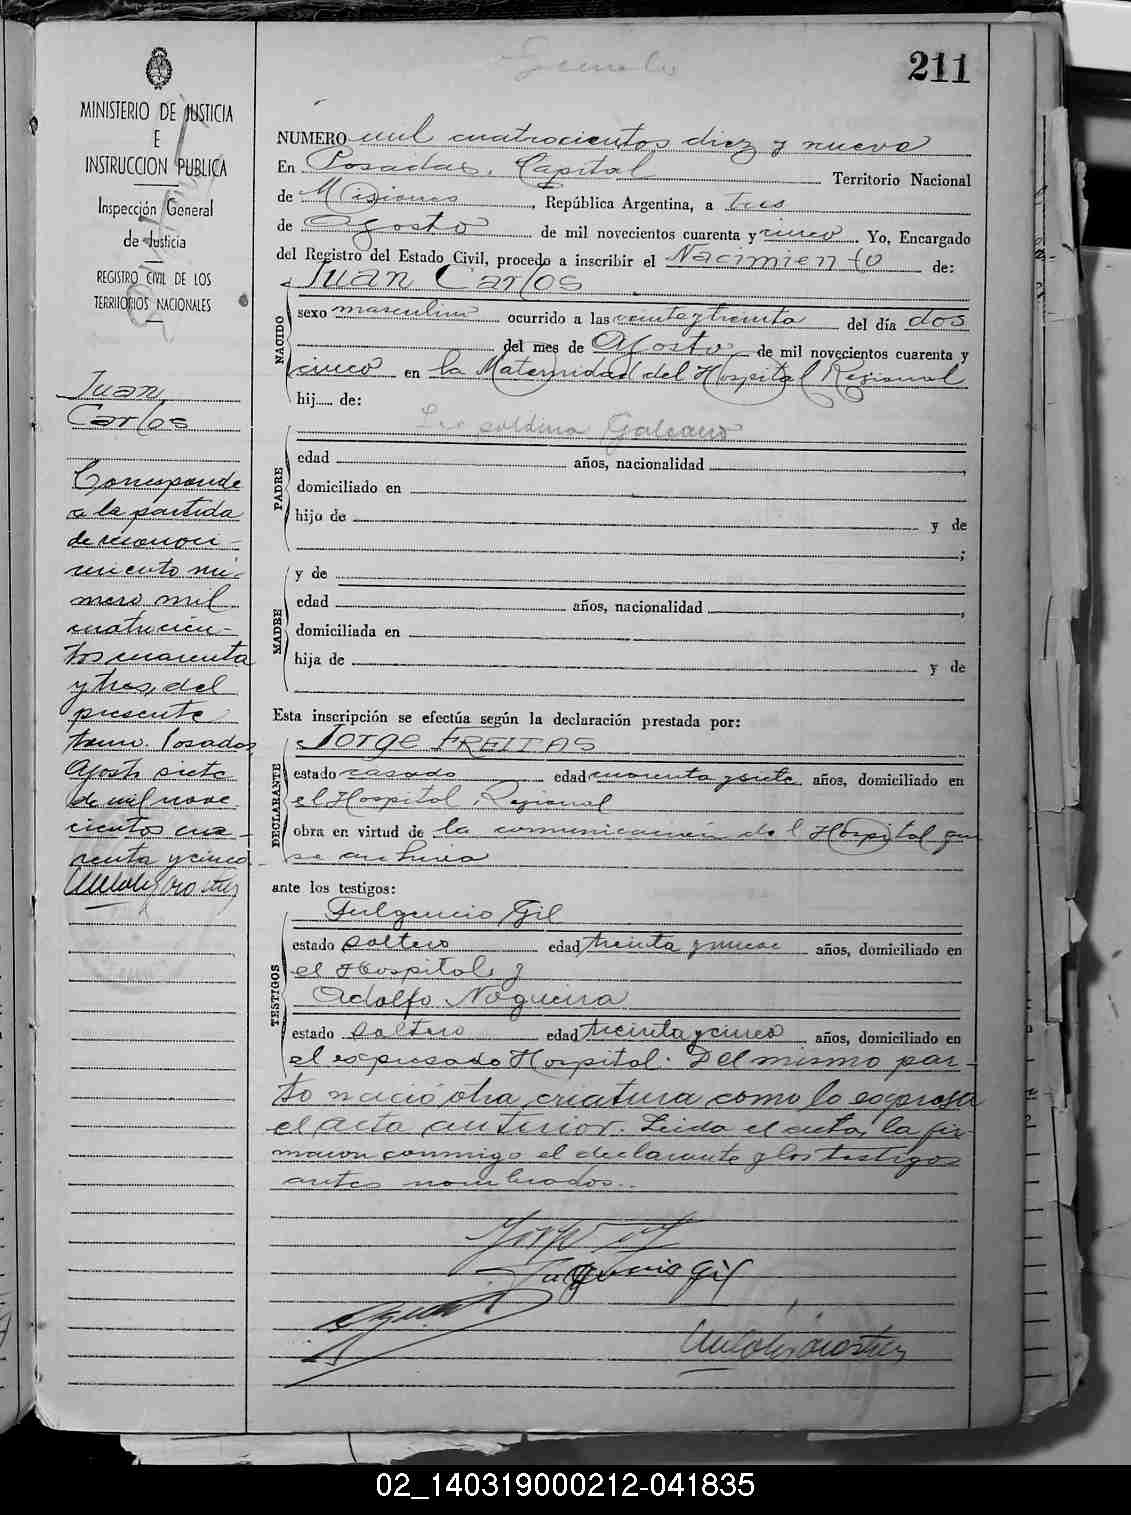 Gemelo
211
MINISTERIO DE JUSTICIA
E
INSTRUCCION PUBLICA
Inspección General
de Justicia
REGISTRO CIVIL DE LOS
TERRITORIOS NACIONALES
Juan
Carlos
Corresponde
a la partida
de reconoci-
miento nú-
mero mil
cuatrocien-
tos cuarenta
y tres del
presente
tomo. Posadas
Agosto siete
de mil nove-
cientos cua-
renta y cinco
NUMERO mil cuatrocientos diez y nueve
En Posadas, Capital Territorio Nacional
de Misiones, República Argentina, a tres
de Agosto de mil novecientos cuarenta y cinco. Yo, Encargado
del Registro del Estado Civil, procedo a inscribir el Nacimiento de:
Juan Carlos
NACIDO
sexo masculino ocurrido a las veinte y treinta del día dos
del mes de Agosto de mil novecientos cuarenta y
cinco en la Maternidad del Hospital Regional
hij..... de:
Leopoldina Galeano
PADRE
edad años, nacionalidad ,
domiciliado en
hijo de y de
;
MADRE
y de
edad años, nacionalidad ,
domiciliada en
hija de y de
Esta inscripción se efectúa según la declaración prestada por:
Jorge FREITAS
DECLARANTE
estado casado edad cuarenta y siete años, domiciliado en
el Hospital Regional
obra en virtud de la comunicación del Hospital que
se archiva
ante los testigos:
Fulgencio Gil
TESTIGOS
estado soltero edad treinta y nueve años, domiciliado en
el Hospital y
Adolfo Nogueira
estado soltero edad treinta y cinco años, domiciliado en
el expresado Hospital. Del mismo par-
to nació otra criatura como lo expresa
el acta anterior. Leida el acta, la fir-
maron conmigo el declarante y los testigos
antes nombrados.
Fulgencio Gil
02_140319000212-041835